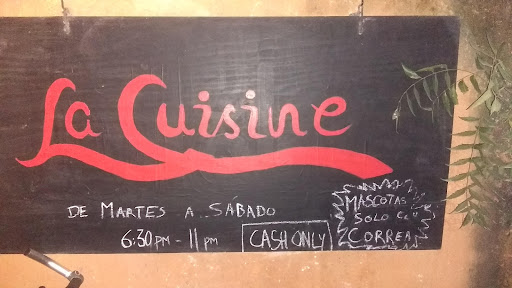 La Cuisine
DE MARTES A SÁBADO
6:30 PM - 11 PM
CASH ONLY
MASCOTAS
SOLO C/
CORREA